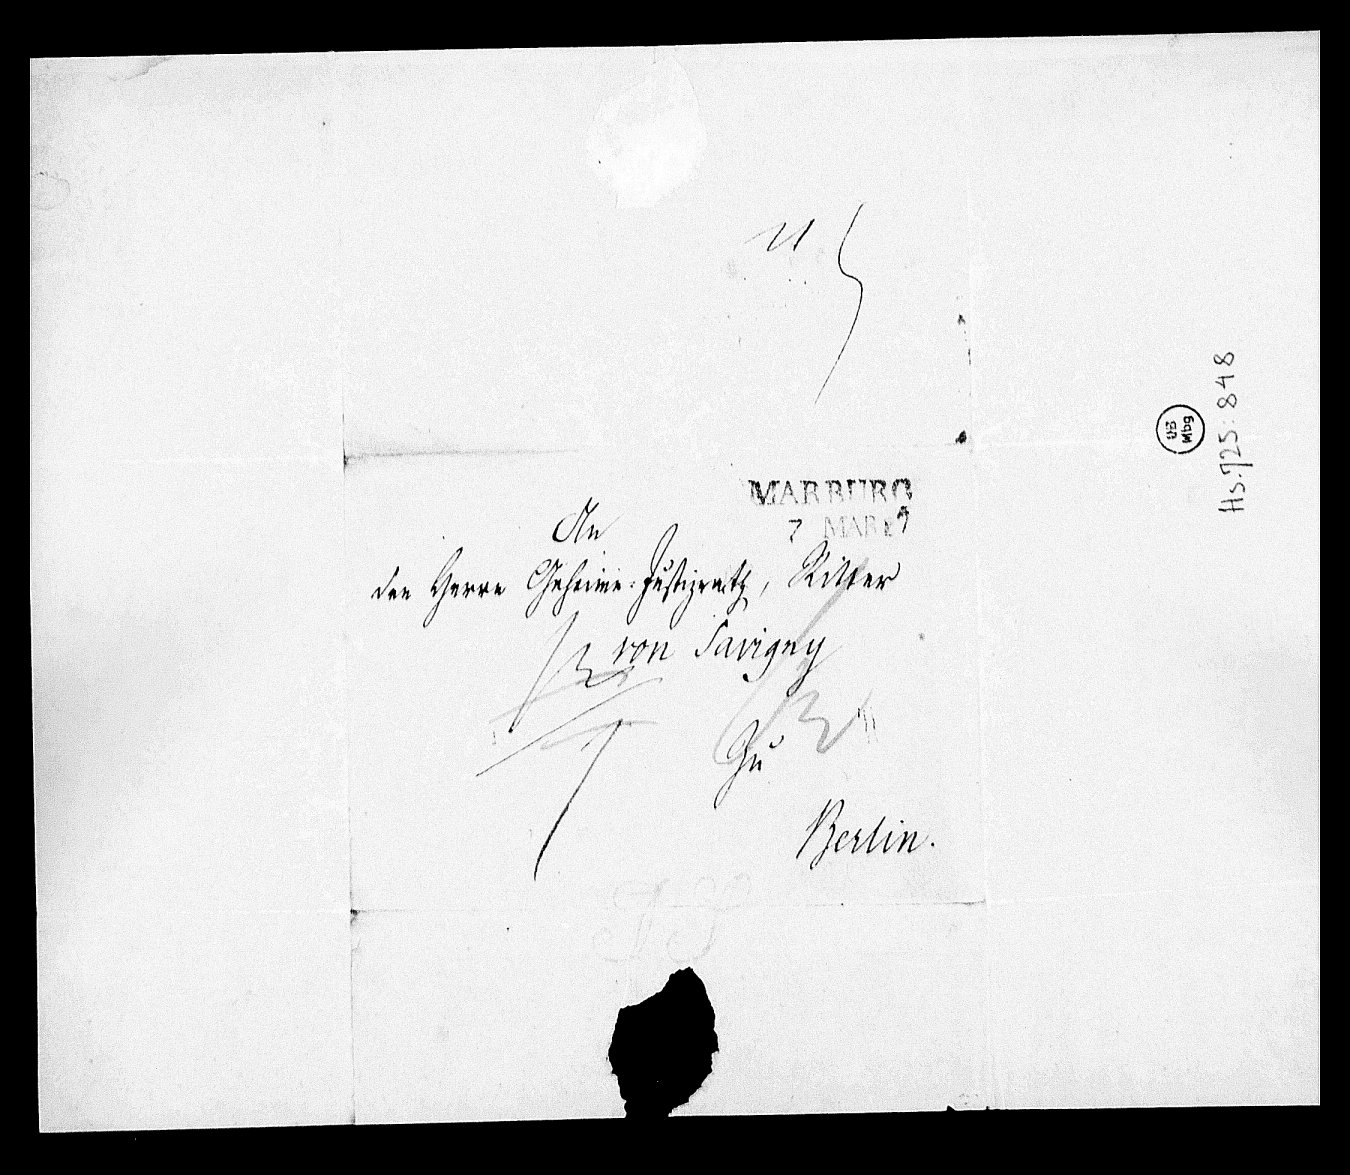 MARBURG
7 MAR
An
den Herrn Geheime-Justizrath, Ritter
von Savigny
Zu
Berlin.
Hs. 725: 848
UB
Mbg